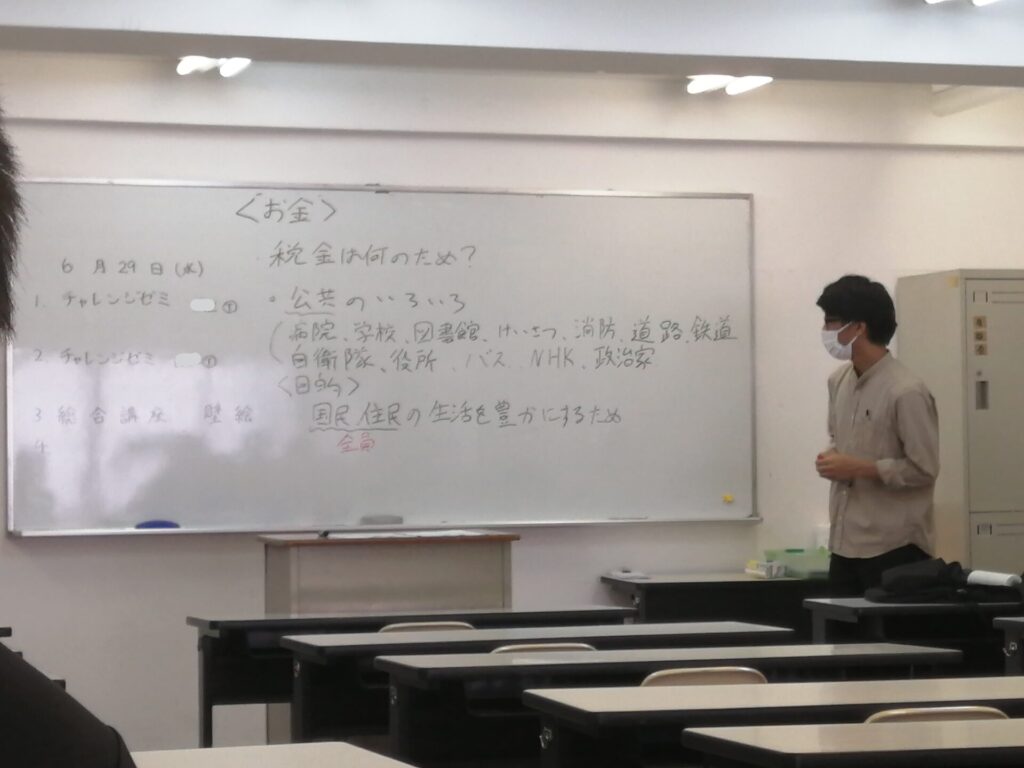 6月29日(水)
1. チャレンジゼミ ①
2. チャレンジゼミ ①
3 総合講座 壁絵
4
<お金>
・税金は何のため?
・公共のいろいろ
(病院、学校、図書館、けいさつ、消防、道路、鉄道
自衛隊、役所、バス、NHK、政治家
<目的>
国民、住民の生活を豊かにするため
全員